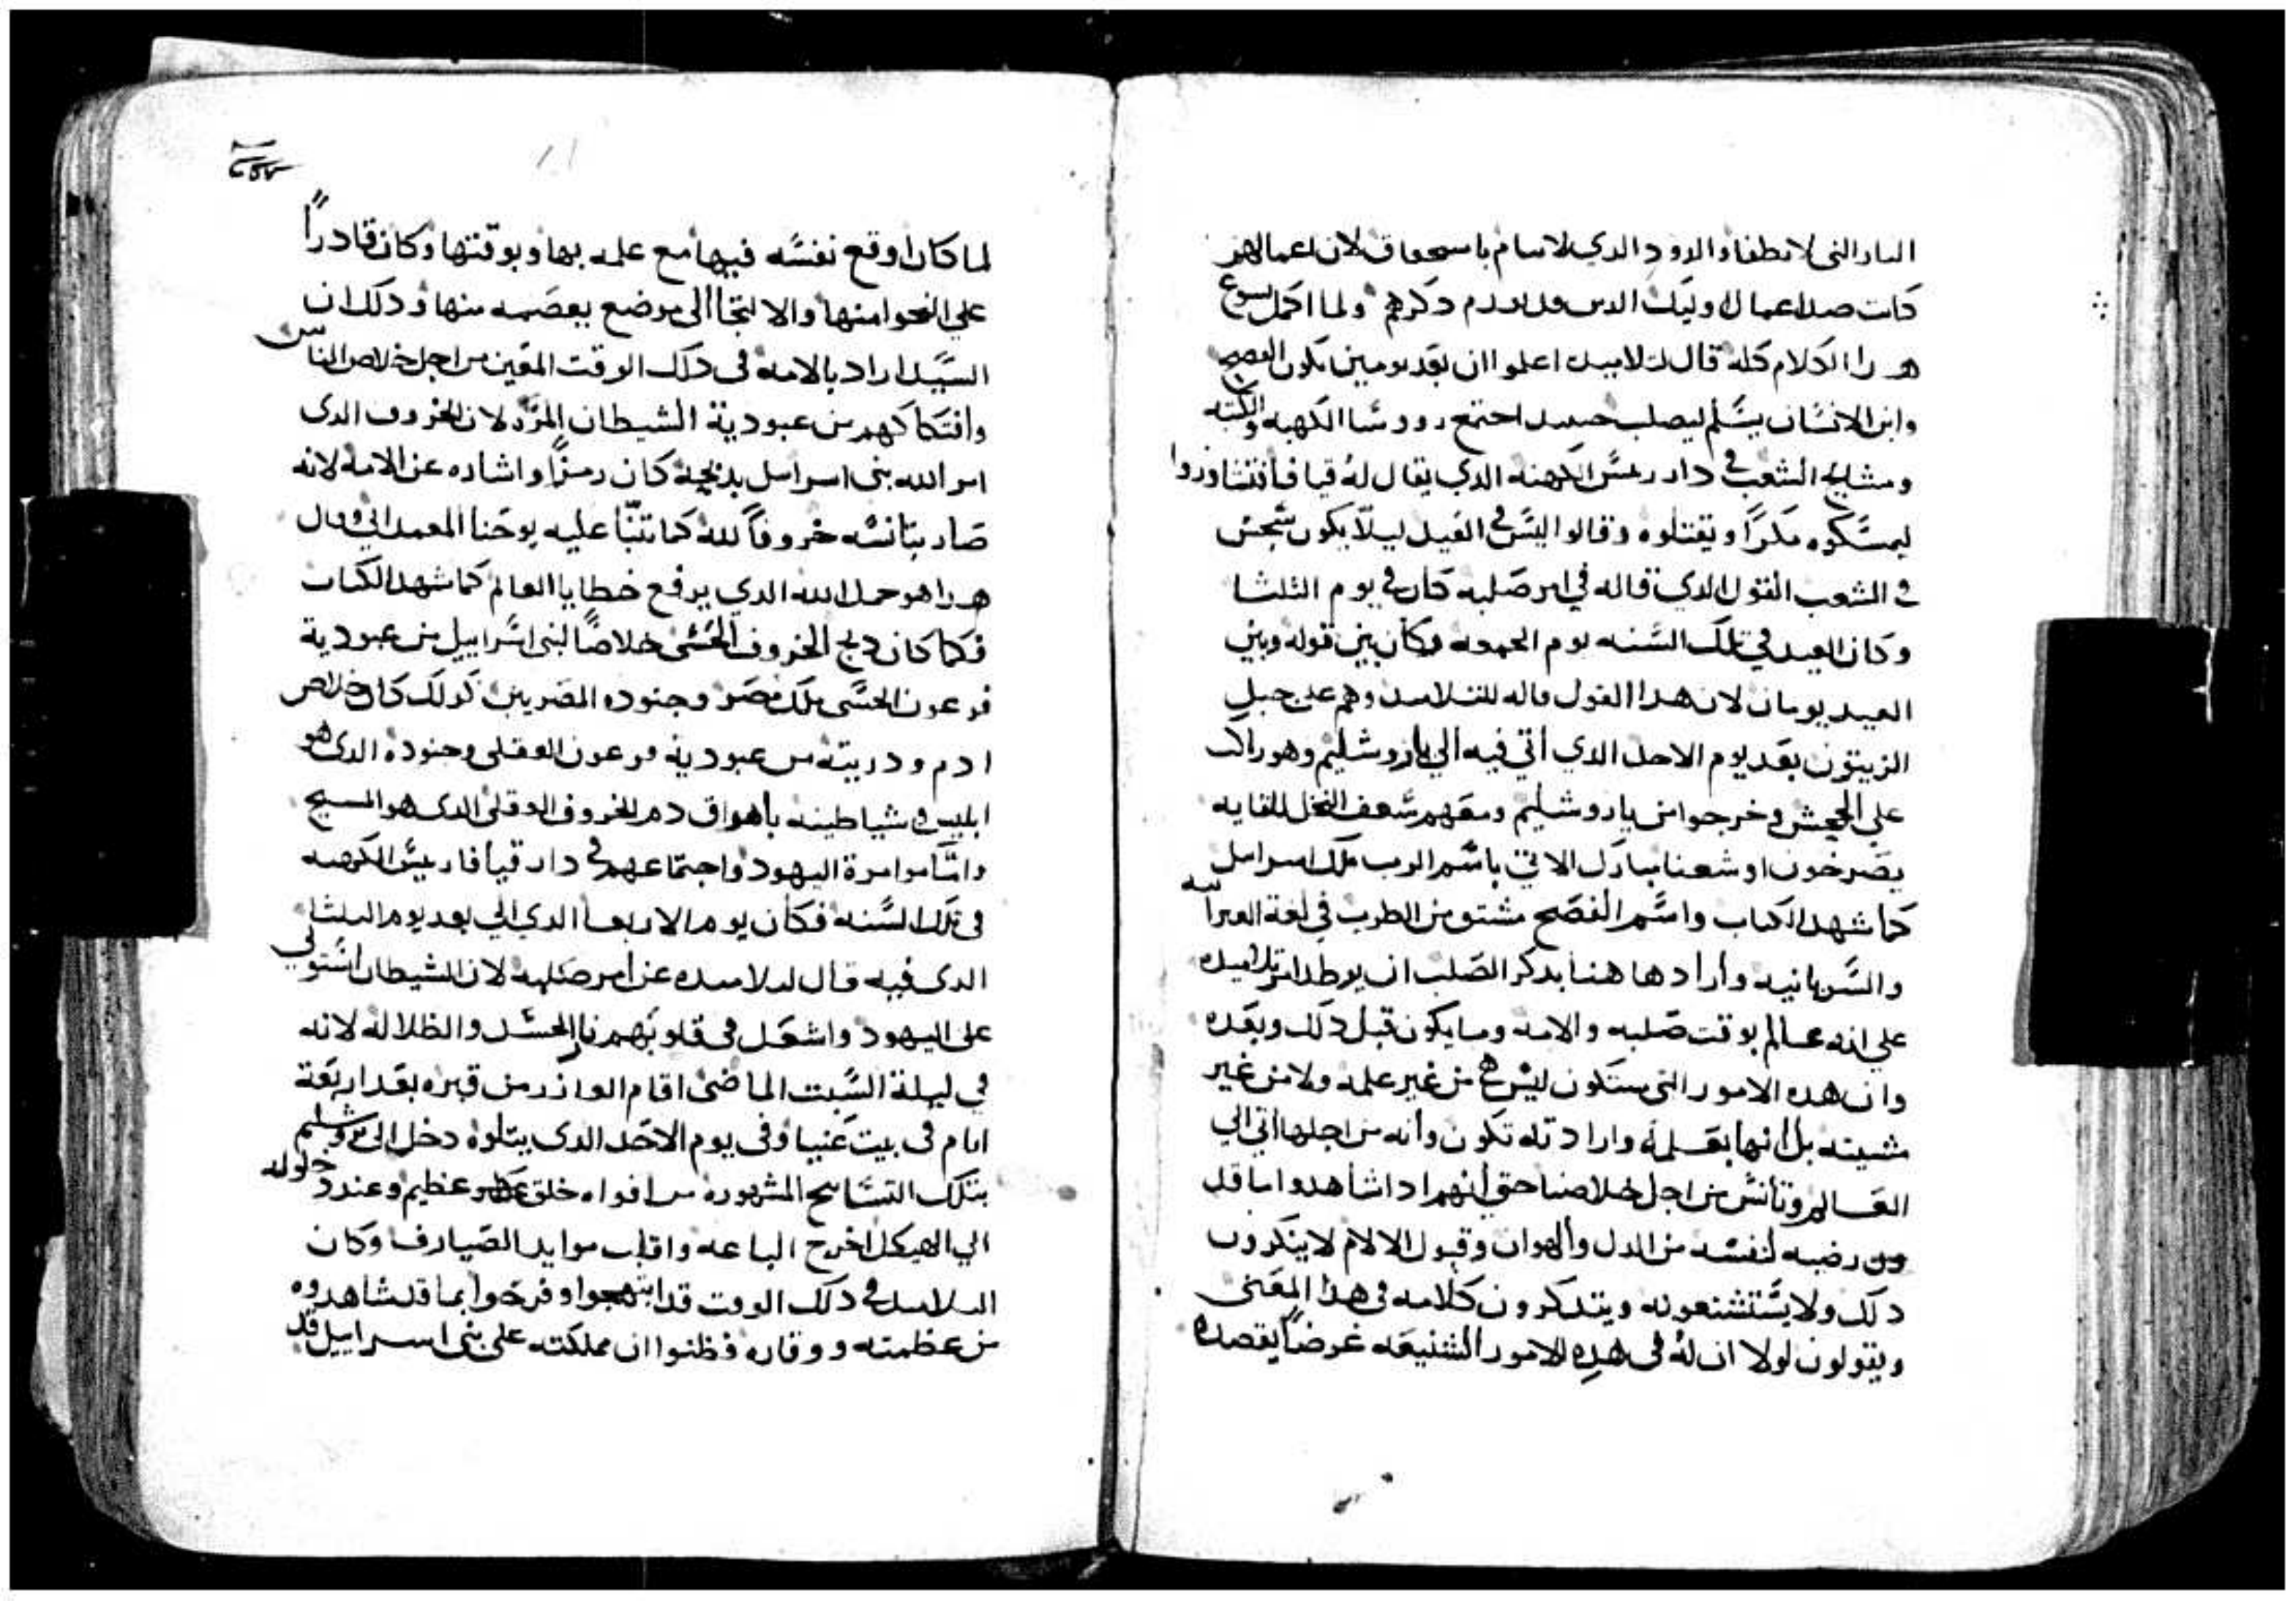 النار التى لا تطفا والدود الدي لا ينام باستحقاق لان اعمالهم
كانت ضد اعمال اوليك الدين قد تقدم دكرهم ولما اكمل يسوع
هدا الكلام كله قال لتلاميده اعلموا ان بعد يومين يكون الفصح
وابن الانسان يسلم ليصلب حينيد اجتمع رووسا الكهنه والكتبه
ومشايخ الشعب في دار رييس الكهنه الدي يقال له قيافا فتشاوروا
ليمسكوه مكرًا ويقتلوه وقالوا ليس في العيد ليلا يكون سجس
في الشعب القول الدي قاله في امر صلبه كان في يوم الثلثا
وكان العيد في تلك السنه يوم الجمعه وكان بين قوله وبين
العيد يومان لان هدا القول قاله للتلاميد وهم على جبل
الزيتون بعد يوم الاحد الدي اتي فيه الي ياروشليم وهو راكب
علي الجحش وخرجوا من ياروشليم ومعهم سعف النخل للقايه
يصرخون اوشعنا مبارك الاتي باسم الرب ملك اسراييل
كما شهد الكتاب واسم الفصح مشتق من الطرب في لغة العبرانيه
والسريانيه واراد ها هنا بدكر الصلب ان يوطد امر تلاميده
علي انه عالم بوقت صلبه والامه وما يكون قبل دلك وبعده
وان هده الامور التى ستكون ليس هي من غير علمه ولا من غير
مشيته بل انها بعلمه وارادته تكون وانه من اجلها اتي الي
العالم وتانس من اجل خلاصنا حتي انهم ادا شاهدوا ما قد
رضيه لنفسه من الدل والهوان وقبول الالام لا ينكرون
دلك ولا يستشنعونه ويتدكرون كلامه فى هدا المعنى
ويقولون لولا ان له فى هده الامور الشنيعه غرضًا يقصده
لما كان اوقع نفسه فيها مع علمه بها وبوقتها وكان قادرًا
علي النجو منها والالتجا الى موضع يعصمه منها ودلك ان
السيد اراد بالامه فى دلك الوقت المعين من اجل خلاص الناس
وافتكاكهم من عبودية الشيطان المرد لان الخروف الدى
امر الله بنى اسراييل بدبحه كان رمزًا واشاره عن الامه لانه
صار بتانسه خروفًا لله كما تنبا عليه يوحنا المعمداني وقال
هدا هو حمل الله الدي يرفع خطايا العالم كما شهد الكتاب
فكما كان دبح الخروف الحسى خلاصًا لبنى اسراييل من عبودية
فرعون الحسى ملك مصر وجنوده المصريين كدلك كان خلاص
ادم ودريته من عبودية فرعون العقلى وجنوده الدى هو
ابليس وشياطينه باهراق دم الخروف العقلى الدى هو المسيح
واما موامرة اليهود واجتماعهم في دار قيافا رييس الكهنه
فى تلك السنه فكان يوم الاربعا الدي الي بعد يوم الثلثا
الدى فيه قال لتلاميده عن امر صلبه لان الشيطان استولى
على اليهود واشعل فى قلوبهم نار الحسد والظلاله لانه
في ليلة السبت الماضى اقام العازر من قبره بعد اربعة
ايام فى بيت عنيا وفى يوم الاحد الدى يتلوه دخل الى يروشليم
بتلك التسابيح المشهوره من افواه خلق عظيم وعند دخوله
الي الهيكل اخرج الباعه واقلب موايد الصيارف وكان
التلاميد في دلك الوقت قد ابتهجوا وفرحوا بما قد شاهدوه
من عظمته ووقاره فظنوا ان مملكته على بنى اسراييل قد